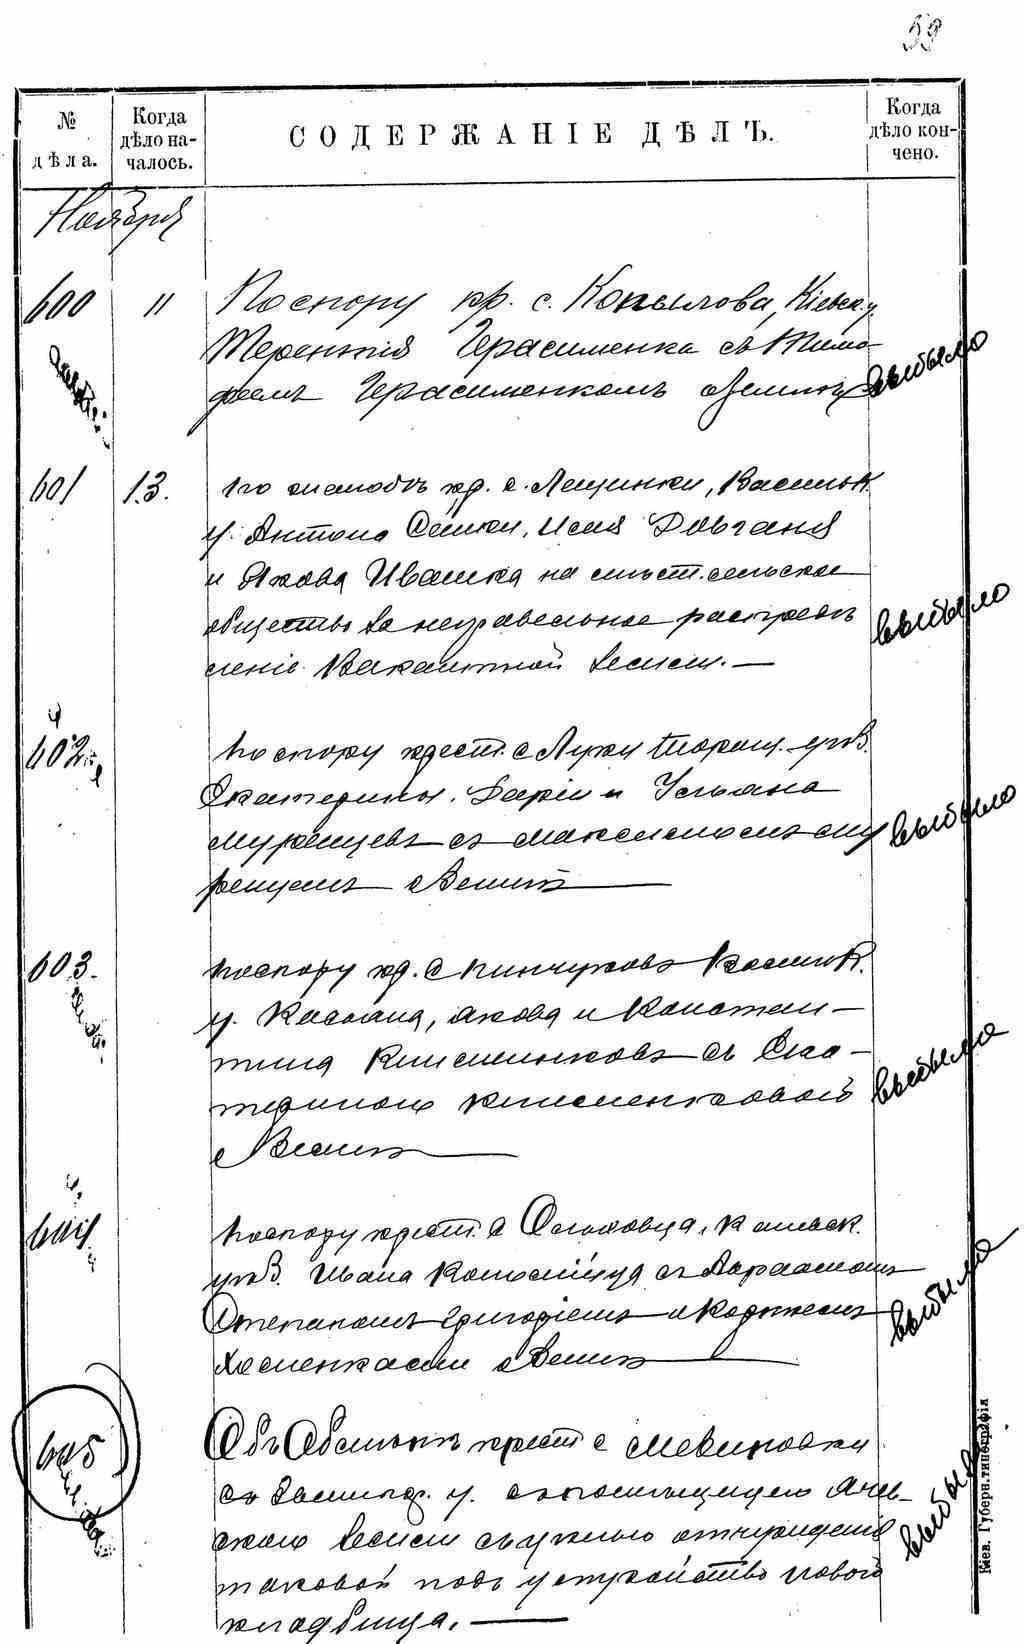 59
№ дѣла.
Когда дѣло на-
чалось.
СОДЕРЖАНІЕ ДѢЛЪ.
Когда дѣло кон-
чено.
Ноября
600 11 По спору кр. с. Копылова, Кіевск. у.
Терентія Герасименка съ Тимо-
феемъ Герасименкомъ о землѣ выбыло
601 13. По жалобѣ кр. с. Лещинки, Васильк.
у. Антона Сешки, Исая Довганя
и Якова Ивашка на мѣстн. сельское
общество за неправельное распредѣ
леніе вакантной земли. — выбыло
602 По спору крест. с. Луки Таращ. уѣз.
Екатерины, Даріи и Ульяна
Муренцевъ съ Максимомъ Му
ренцемъ о землѣ — выбыло
603. По спору кр. с. Пинчуковъ Васильк.
у. Касьяна, Якова и Констан-
тина Клименковъ съ Ека-
териною Клименковой
о землѣ — выбыло
604 По спору крест. с. Ольховца,
уѣз. Ивана съ
Степаномъ Григоріемъ и Корнеемъ
Хоменками о землѣ — выбыло
605 Объ обмѣнѣ крест. с.
с. у.
земли съ цѣлью отчужденія
таковой подъ устройство новаго
кладбища. — выбыло
Кіев. Губерн. типографія